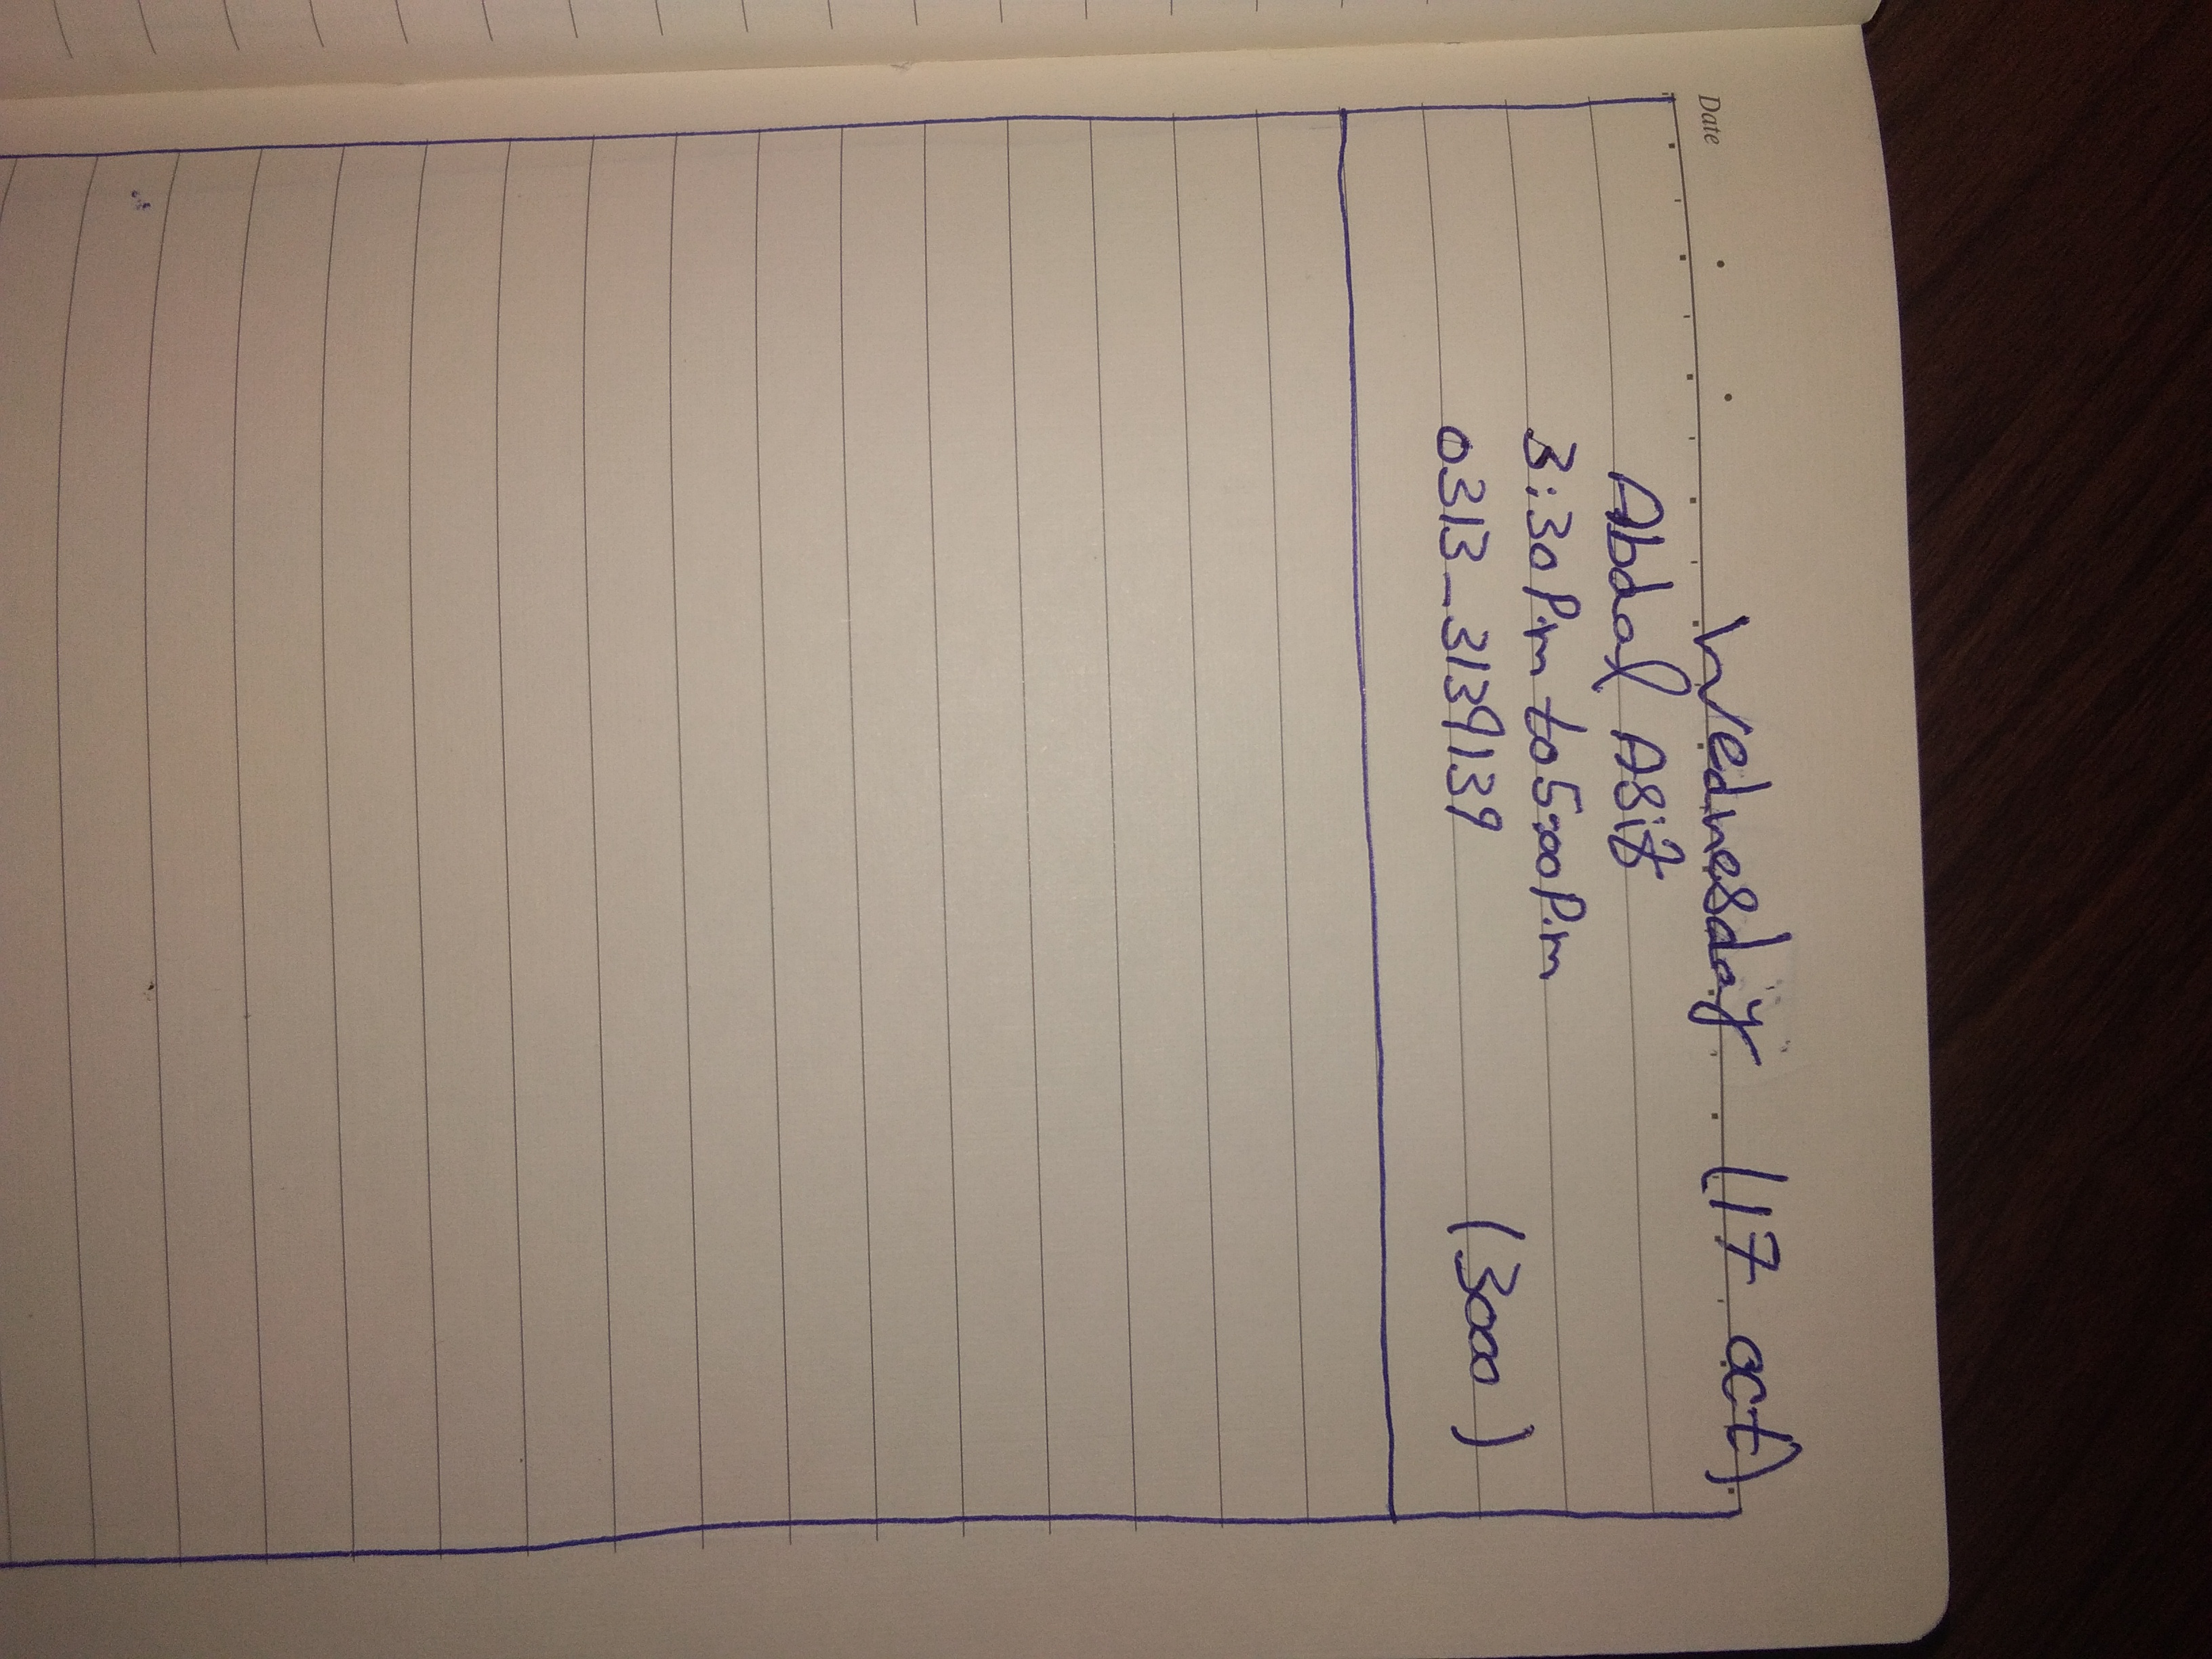 Date
Wednesday (17 oct)
Abdal Asif
3:30 P.m to 5:00 P.m
0313_3139139 (3000)